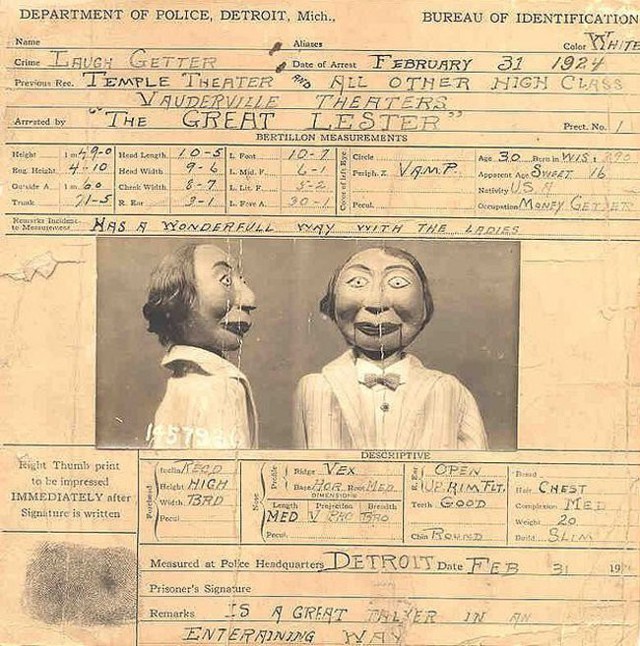 DEPARTMENT OF POLICE, DETROIT, Mich., BUREAU OF IDENTIFICATION
Name Aliases Color WHITE
Crime LAUGH GETTER Date of Arrest FEBRUARY 31 1924
Previous Rec. TEMPLE THEATER AND ALL OTHER HIGH CLASS
VAUDERVILLE THEATERS
Arrested by "THE GREAT LESTER" Prect. No. 1
BERTILLON MEASUREMENTS
Height 1 m 49-0 Head Length 10-5 L. Foot 10-7 Circle Age 30 Born in WIS.
Eng. Height 4-10 Head Width 9-6 L. Mid. F. 6-1 Periph. Z VAMP. Apparent Age SWEET 16
Outside A. 1 m 60 Cheek Width 8-7 L. Lit. F. 5-2 Nativity U.S.A
Trunk 71-5 R. Ear 3-1 L. Fore A. 30-1 Pecul. Occupation MONEY GETTER
Color of Left Eye
Remarks Incident to Measurement HAS A WONDERFULL WAY WITH THE LADIES
DESCRIPTIVE
Right Thumb print
to be impressed
IMMEDIATELY after
Signature is written
Forehead Inclin. RECD Height HIGH Width BRD Pecul.
Nose Profile Ridge VEX Base HOR Root MED
DIMENSIONS
Length Projection Breadth
MED
Pecul.
R. Ear OPEN
UP. RIM FLT.
Teeth GOOD
Chin ROUND
Beard
Hair CHEST
Complexion MED
Weight 20
Build SLIM
Measured at Police Headquarters DETROIT Date FEB 31 19
Prisoner's Signature
Remarks IS A GREAT TALKER IN AN
ENTERAINING WAY